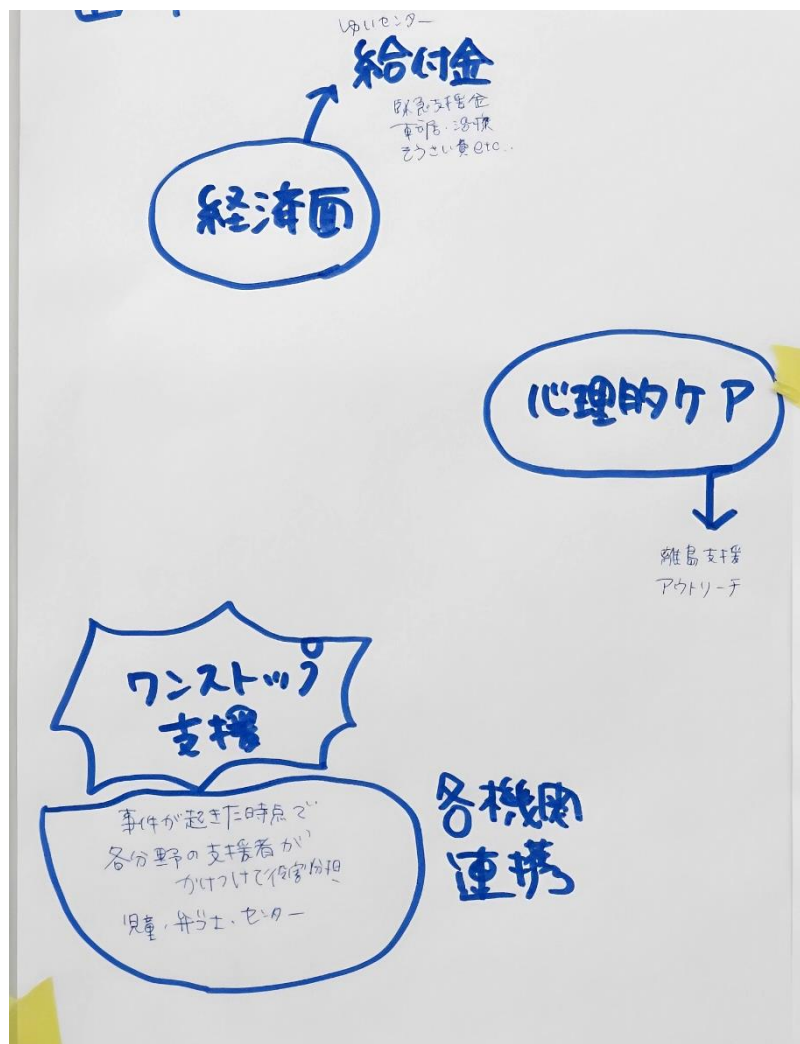 ゆいセンター
給付金
緊急支援金
転居・治療
そうさい費etc..
経済面
心理的ケア
離島支援
アウトリーチ
ワンストップ
支援
事件が起きた時点で
各分野の支援者が
かけつけて役割分担
児童・弁ゴ士・センター
各機関
連携